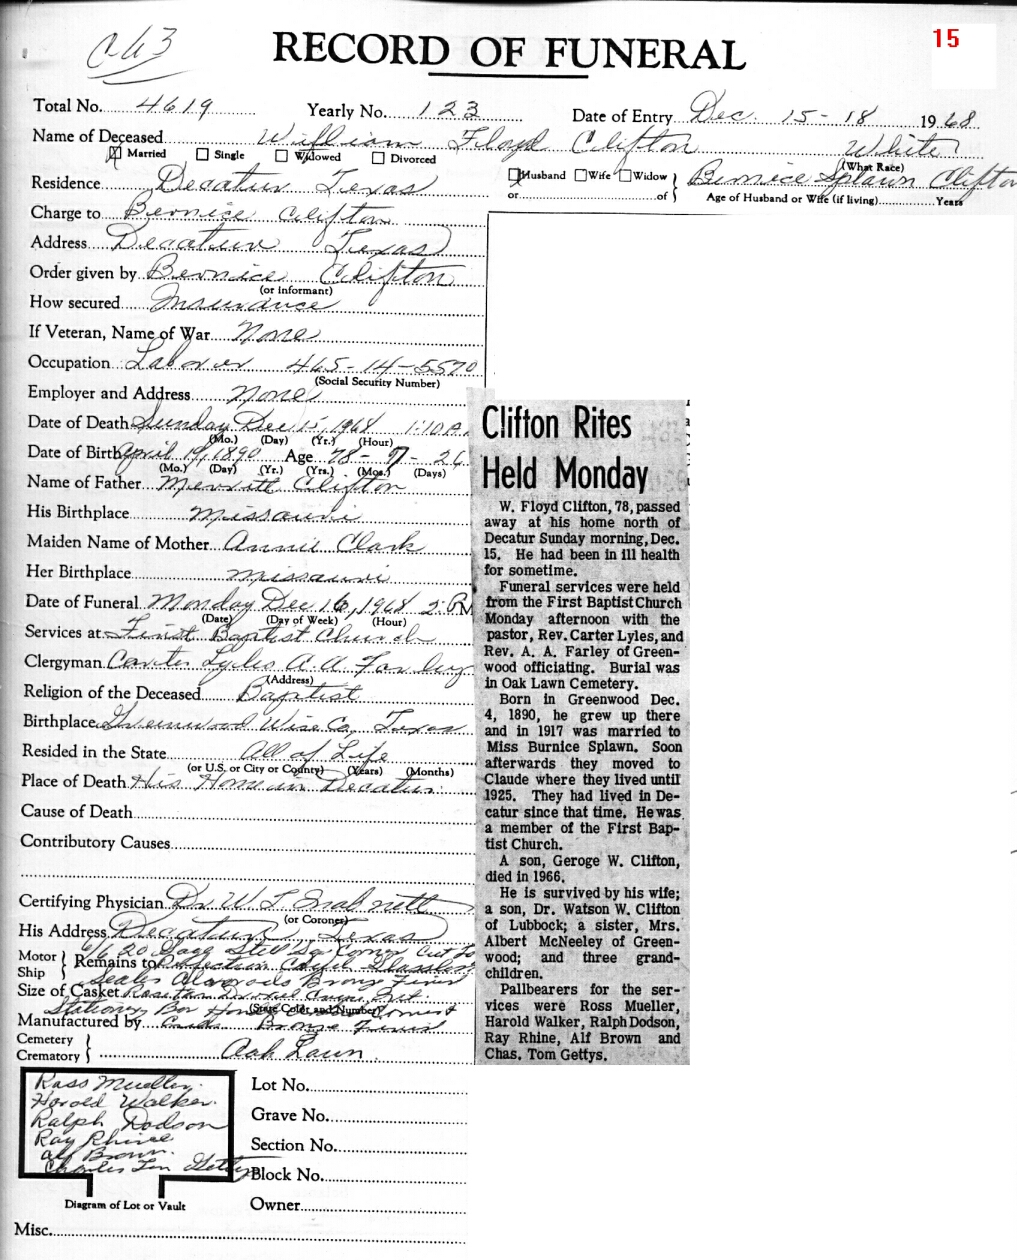 C-63
RECORD OF FUNERAL
15
Total No. 4619 Yearly No. 123 Date of Entry Dec. 15-18 1968
Name of Deceased William Floyd Clifton White
Married Single Widowed Divorced (What Race)
Residence Decatur Texas Husband Wife Widow Bernice Splawn Clifton
or of Age of Husband or Wife (if living) Years
Charge to Bernice Clifton
Address Decatur Texas
Order given by Bernice Clifton
(or informant)
How secured Insurance
If Veteran, Name of War None
Occupation Labor er 465-14-5570
(Social Security Number)
Employer and Address None
Date of Death Sunday Dec 15, 1968 1:10 A.
(Mo.) (Day) (Yr.) (Hour)
Date of Birth April 19, 1890 Age 78-7-26
(Mo.) (Day) (Yr.) (Yrs.) (Mos.) (Days)
Name of Father Merritt Clifton
His Birthplace Missouri
Maiden Name of Mother Annie Clark
Her Birthplace Missouri
Date of Funeral Monday Dec 16, 1968 2:PM
(Date) (Day of Week) (Hour)
Services at First Baptist Church
Clergyman Carter Lyles A.A. Farley
(Address)
Religion of the Deceased Baptist
Birthplace Greenwood Wise Co, Texas
Resided in the State All of Life
(or U.S. or City or County) (Years) (Months)
Place of Death His Home in Decatur
Cause of Death
Contributory Causes
Certifying Physician Dr W T Inabnett
(or Coroner)
His Address Decatur Texas
6/6 20 Gage
Motor Ship Remains to
Size of Casket
(State Color and Number)
Manufactured by Bronze Finish
Cemetery
Crematory Oak Lawn
Ross Mueller.
Harold Walker.
Ralph Dodson
Ray Rhine
Alf Brown.
Charles Tom Gettys
Diagram of Lot or Vault
Lot No.
Grave No.
Section No.
Block No.
Owner
Misc.
Clifton Rites
Held Monday
W. Floyd Clifton, 78, passed
away at his home north of
Decatur Sunday morning, Dec.
15. He had been in ill health
for sometime.
Funeral services were held
from the First Baptist Church
Monday afternoon with the
pastor, Rev. Carter Lyles, and
Rev. A. A. Farley of Green-
wood officiating. Burial was
in Oak Lawn Cemetery.
Born in Greenwood Dec.
4, 1890, he grew up there
and in 1917 was married to
Miss Burnice Splawn. Soon
afterwards they moved to
Claude where they lived until
1925. They had lived in De-
catur since that time. He was
a member of the First Bap-
tist Church.
A son, Geroge W. Clifton,
died in 1966.
He is survived by his wife;
a son, Dr. Watson W. Clifton
of Lubbock; a sister, Mrs.
Albert McNeeley of Green-
wood; and three grand-
children.
Pallbearers for the ser-
vices were Ross Mueller,
Harold Walker, Ralph Dodson,
Ray Rhine, Alf Brown and
Chas. Tom Gettys.